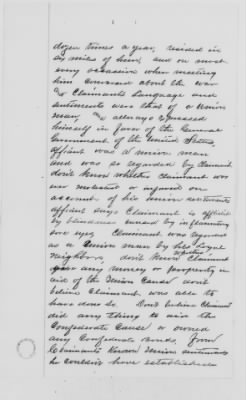 dozen times a year, resided in
six miles of him, and on most
every occasion when meeting
him conversed about the war
& Claimants Language and
sentiments were that of a Union
man, & always expressed
himself in favor of the General
Government of the United States,
affiant was a Union man
and was so regarded by Claimant
don't know whether Claimant was
ever molested or injured on
account of his Union sentiments
affiant says Claimant is afflicted
by blindness caused by inflammatory
sore eyes, Claimant was regarded
as a Union man by his Loyal
neighbors, don't know whether Claimant
gave any money or property in
aid of the Union Cause don't
believe Claimant was able to
have done so. Don't believe Claimant
did any thing to aid the
Confederate Cause or owned
any Confederate bonds, from
Claimants known Union sentiments
he couldn't have established